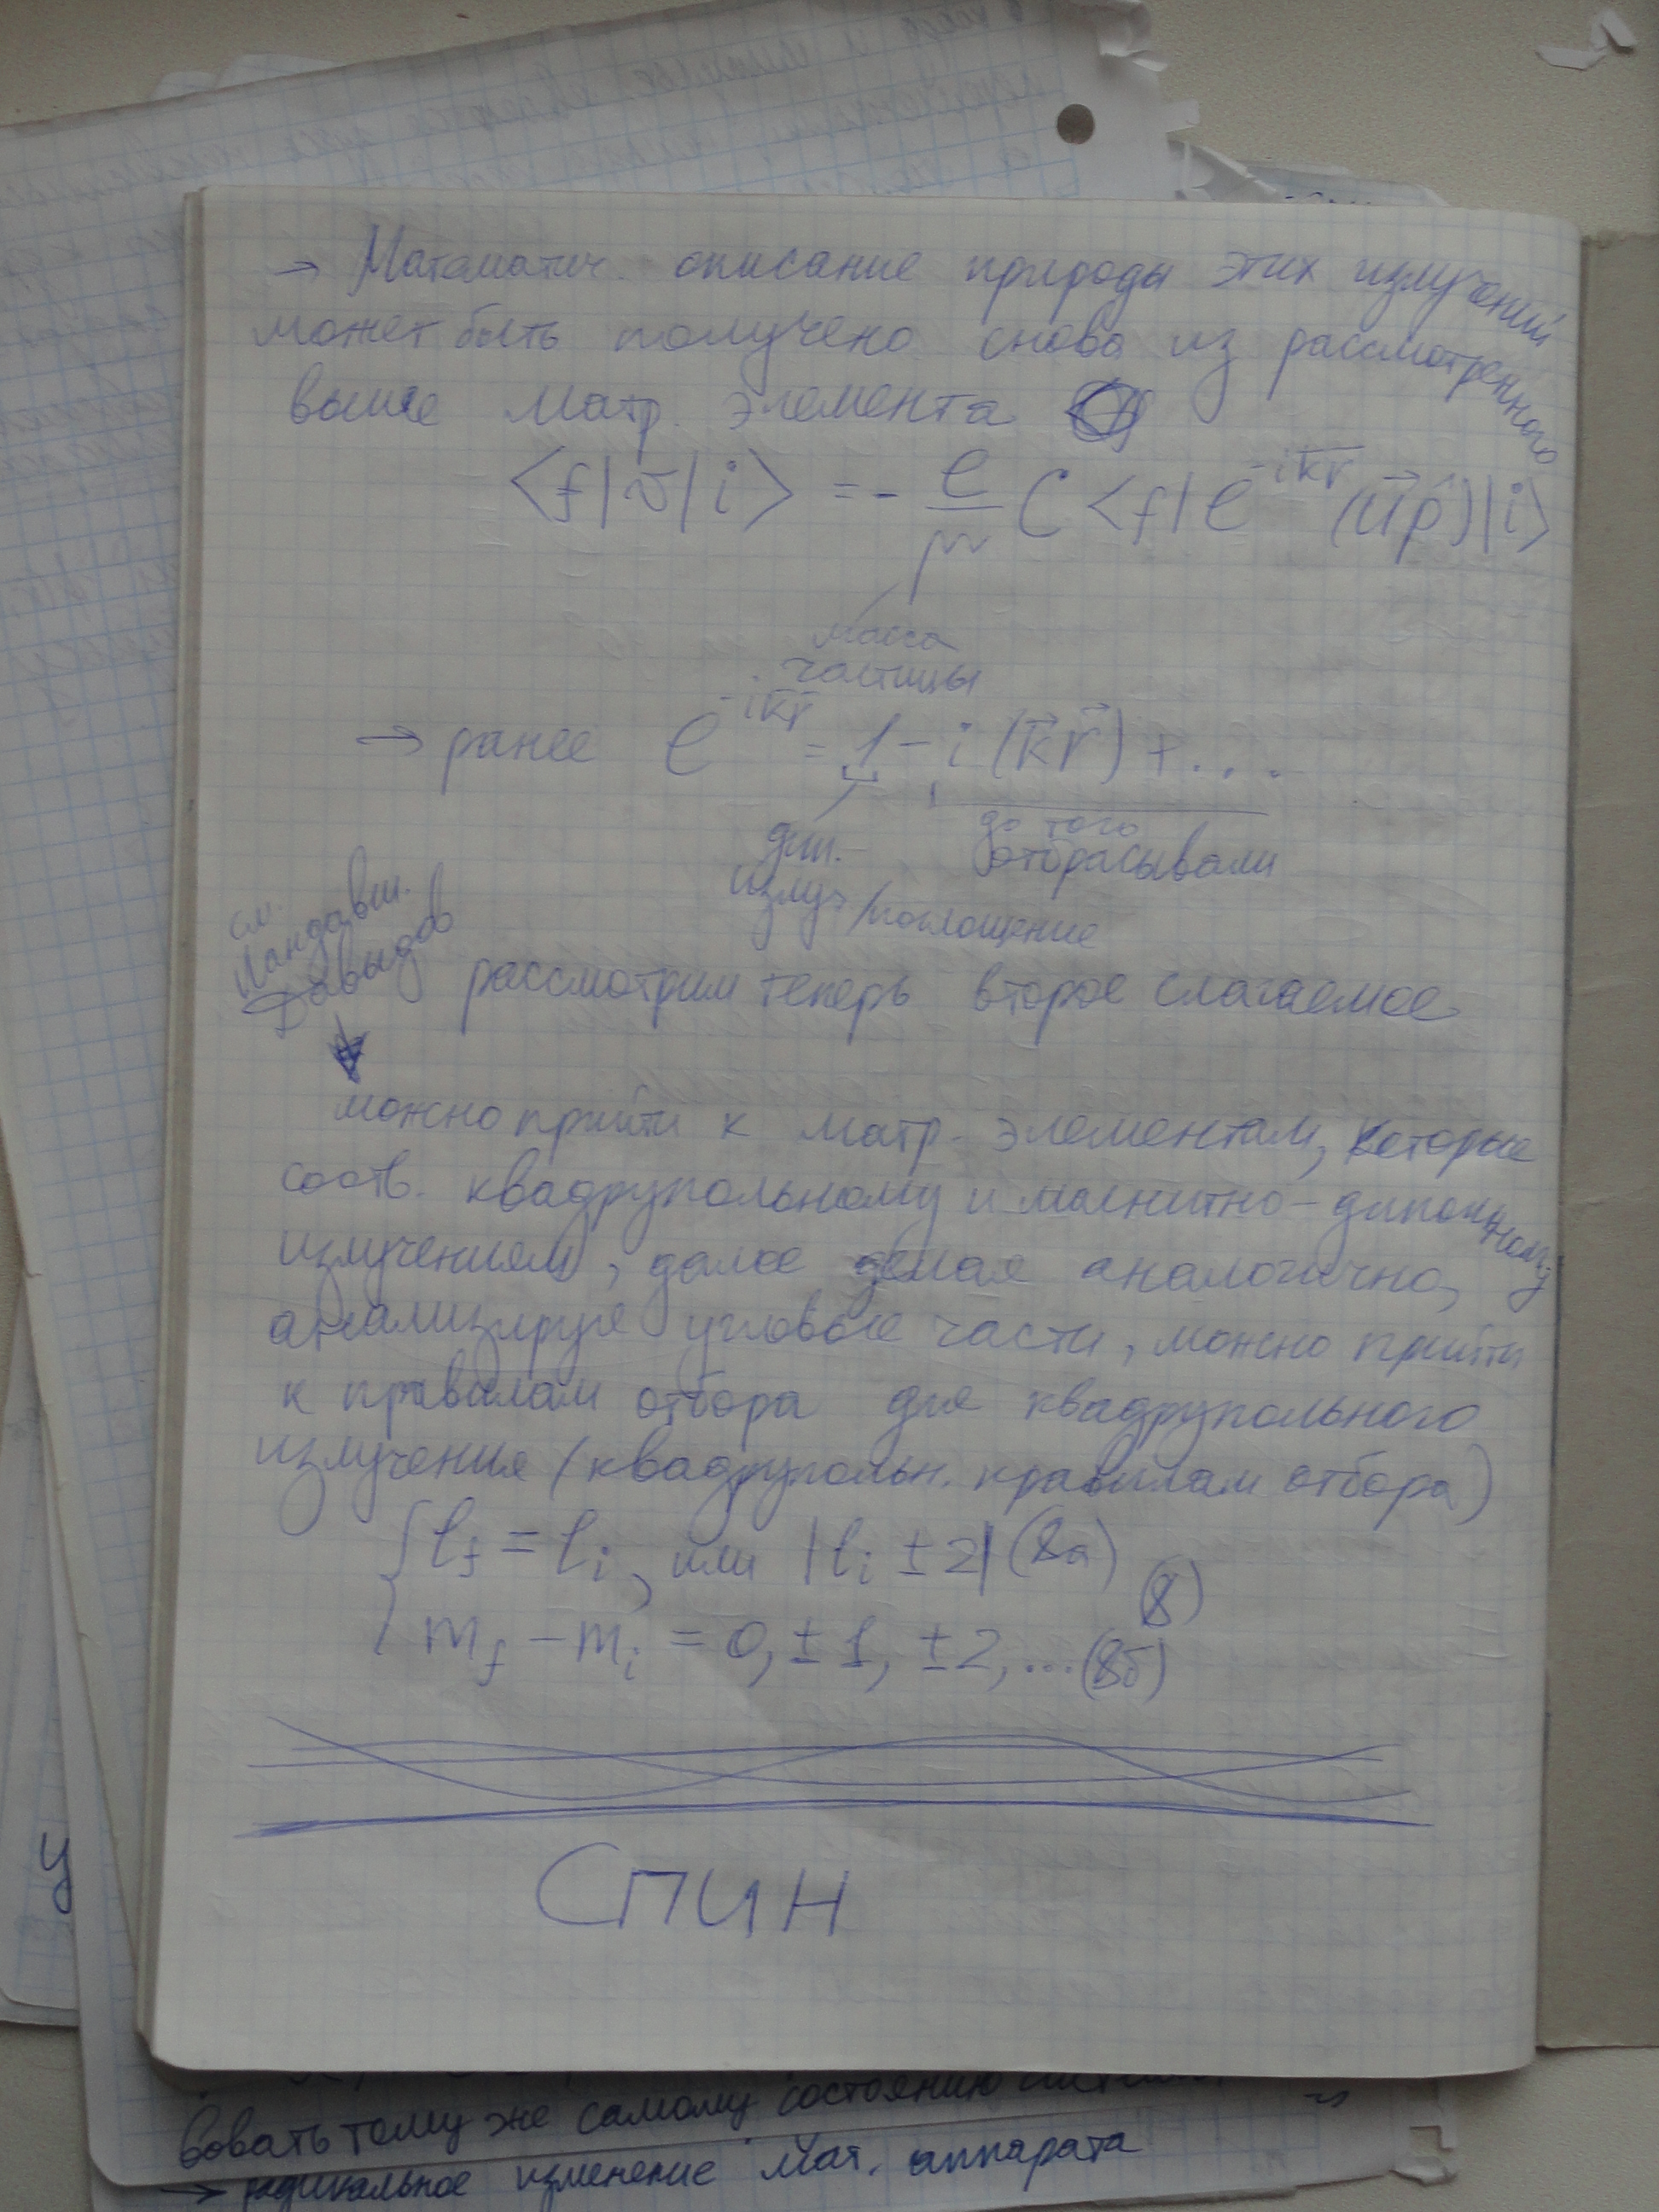 → Математич. описание природы этих излучений
может быть получено снова из рассмотренного
выше матр. элемента
<f|v|i> = - e/μ C <f| e^{-ikr} (u⃗p̂)|i>
масса
частицы
→ ранее e^{-ikr} = 1 - i(k⃗r⃗) + ...
до того
отбрасывали
дип.
излуч/поглощение
см.
Ландавш.
Давыдов
рассмотрим теперь второе слагаемое
можно прийти к матр. элементам, которые
соотв. квадрупольному и магнитно-дипольному
излучениям, далее делая аналогично,
анализируя угловые части, можно прийти
к правилам отбора для квадрупольного
излучения (квадрупольн. правилам отбора)
{ l_f = l_i, или |l_i ± 2| (8а)
(8)
m_f - m_i = 0, ±1, ±2, ... (8б)
Спин
У
вовать тому же самому состоянию
→ радикальное изменение мат. аппарата